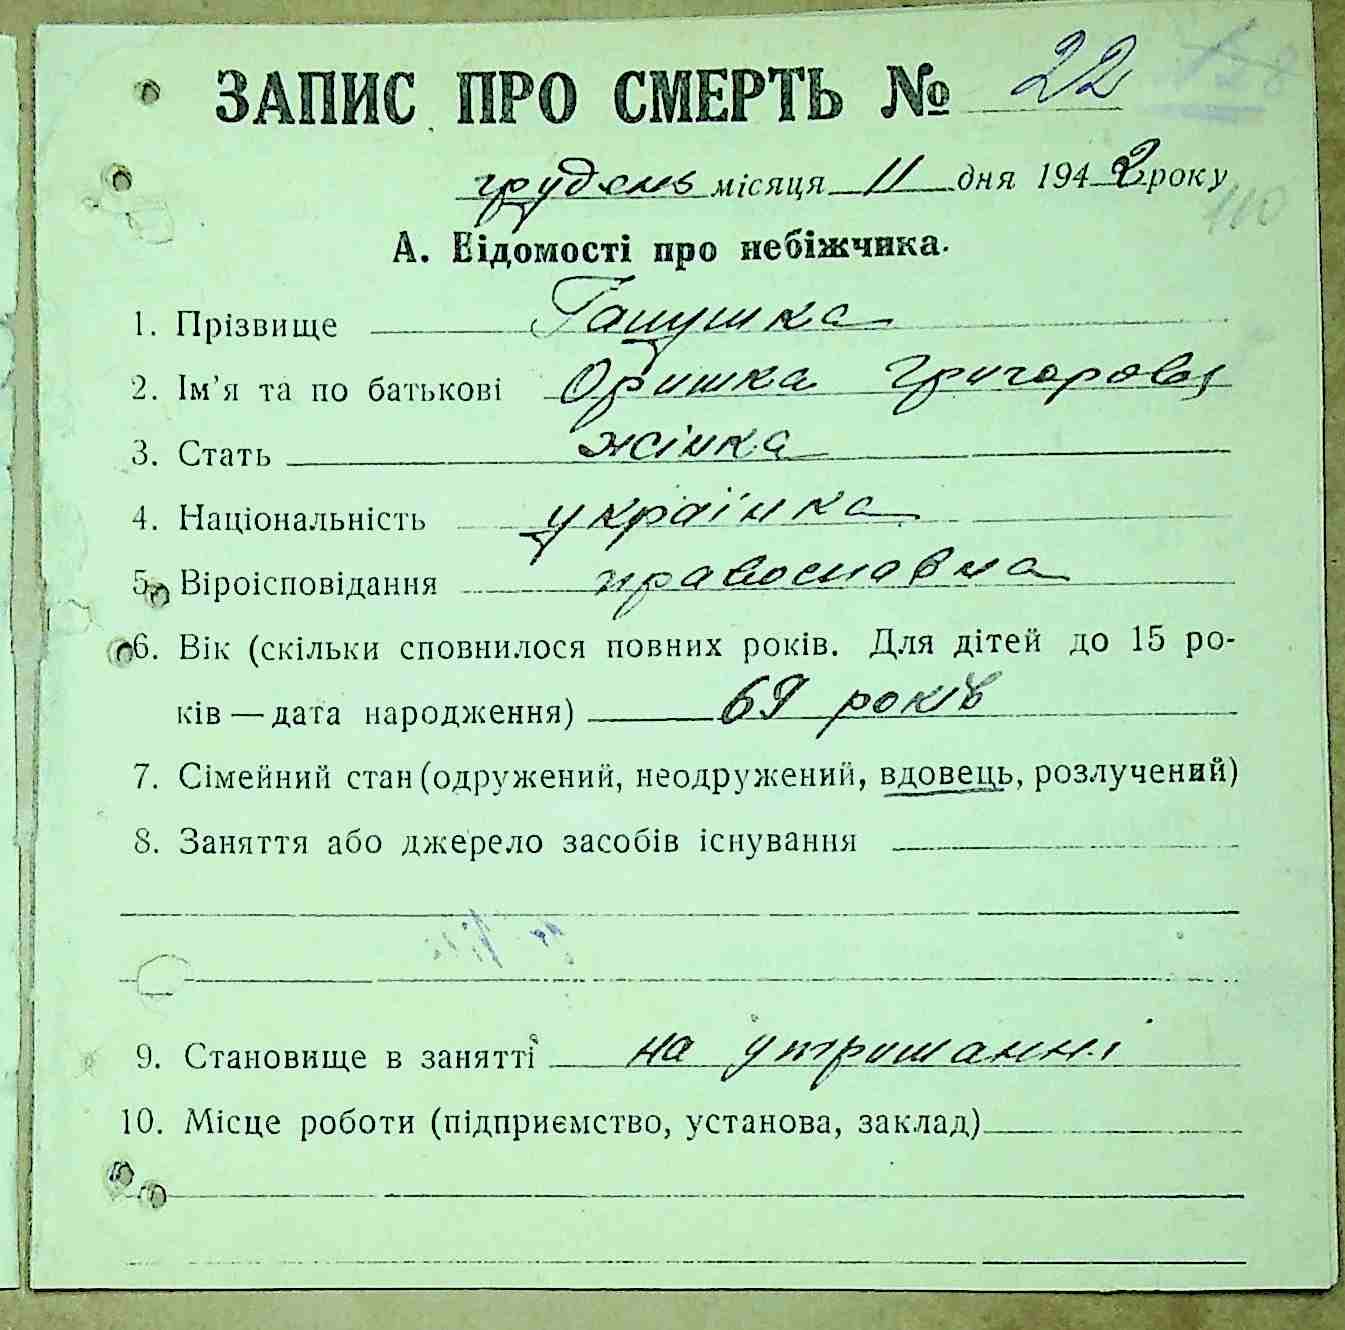 ЗАПИС ПРО СМЕРТЬ № 22
грудень місяця 11 дня 1942 року
110
А. Відомості про небіжчика.
1. Прізвище Гапушка
2. Ім'я та по батькові Оришка Григорова
3. Стать жінка
4. Національність українка
5. Віроісповідання православна
6. Вік (скільки сповнилося повних років. Для дітей до 15 ро-
ків — дата народження) 69 років
7. Сімейний стан (одружений, неодружений, вдовець, розлучений)
8. Заняття або джерело засобів існування
9. Становище в занятті на утриманні
10. Місце роботи (підприємство, установа, заклад)